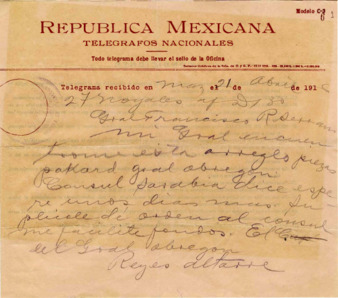 Modelo C-3
REPUBLICA MEXICANA
TELEGRAFOS NACIONALES
Todo telegrama debe llevar el sello de la Oficina
Telegrama recibido en Maz el 21 Abril de 191
27 Nogales
Gral Francisco R Serrano
Mi Gral encuen
trome esta arreglo piezas
pakard gral obregon
Consul Sarabia dice espe
re unos dias mas. Su
plicole dé orden al consul
me facilite fondos. El
el Gral obregon
Reyes